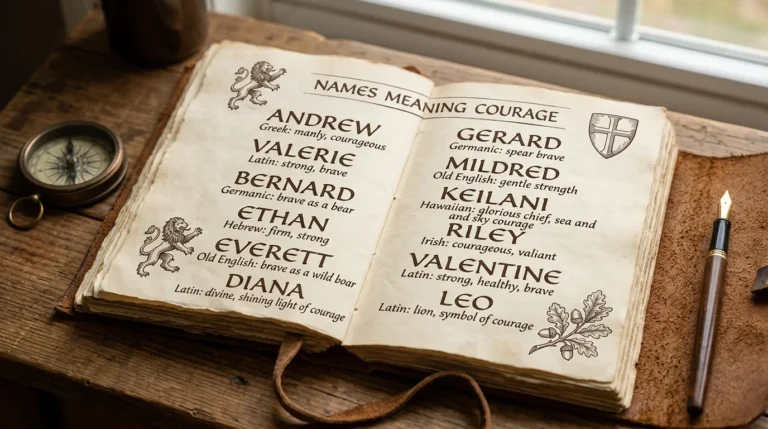 NAMES MEANING COURAGE
ANDREW
Greek: manly, courageous
VALERIE
Latin: strong, brave
BERNARD
Germanic: brave as a bear
ETHAN
Hebrew: firm, strong
EVERETT
Old English: brave as a wild boar
DIANA
Latin: divine, shining light of courage
GERARD
Germanic: spear brave
MILDRED
Old English: gentle strength
KEILANI
Hawaiian: glorious chief, sea and
and sky courage
RILEY
Irish: courageous, valiant
VALENTINE
Latin: strong, healthy, brave
LEO
Latin: lion, symbol of courage